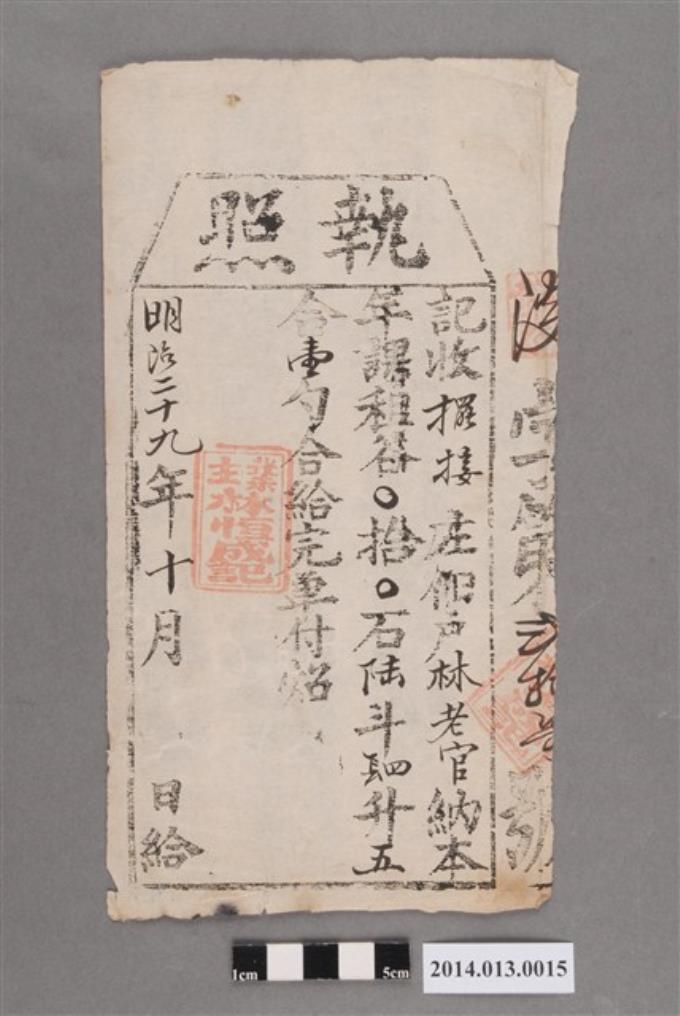 執照
記收擺接庄佃戶林老官納本
年課租谷〇拾〇石陸斗肆升五
合壹勺合給完單付炤
明治二十九年十月 日給
業主林恒盛記
字第 號
1cm 5cm
2014.013.0015